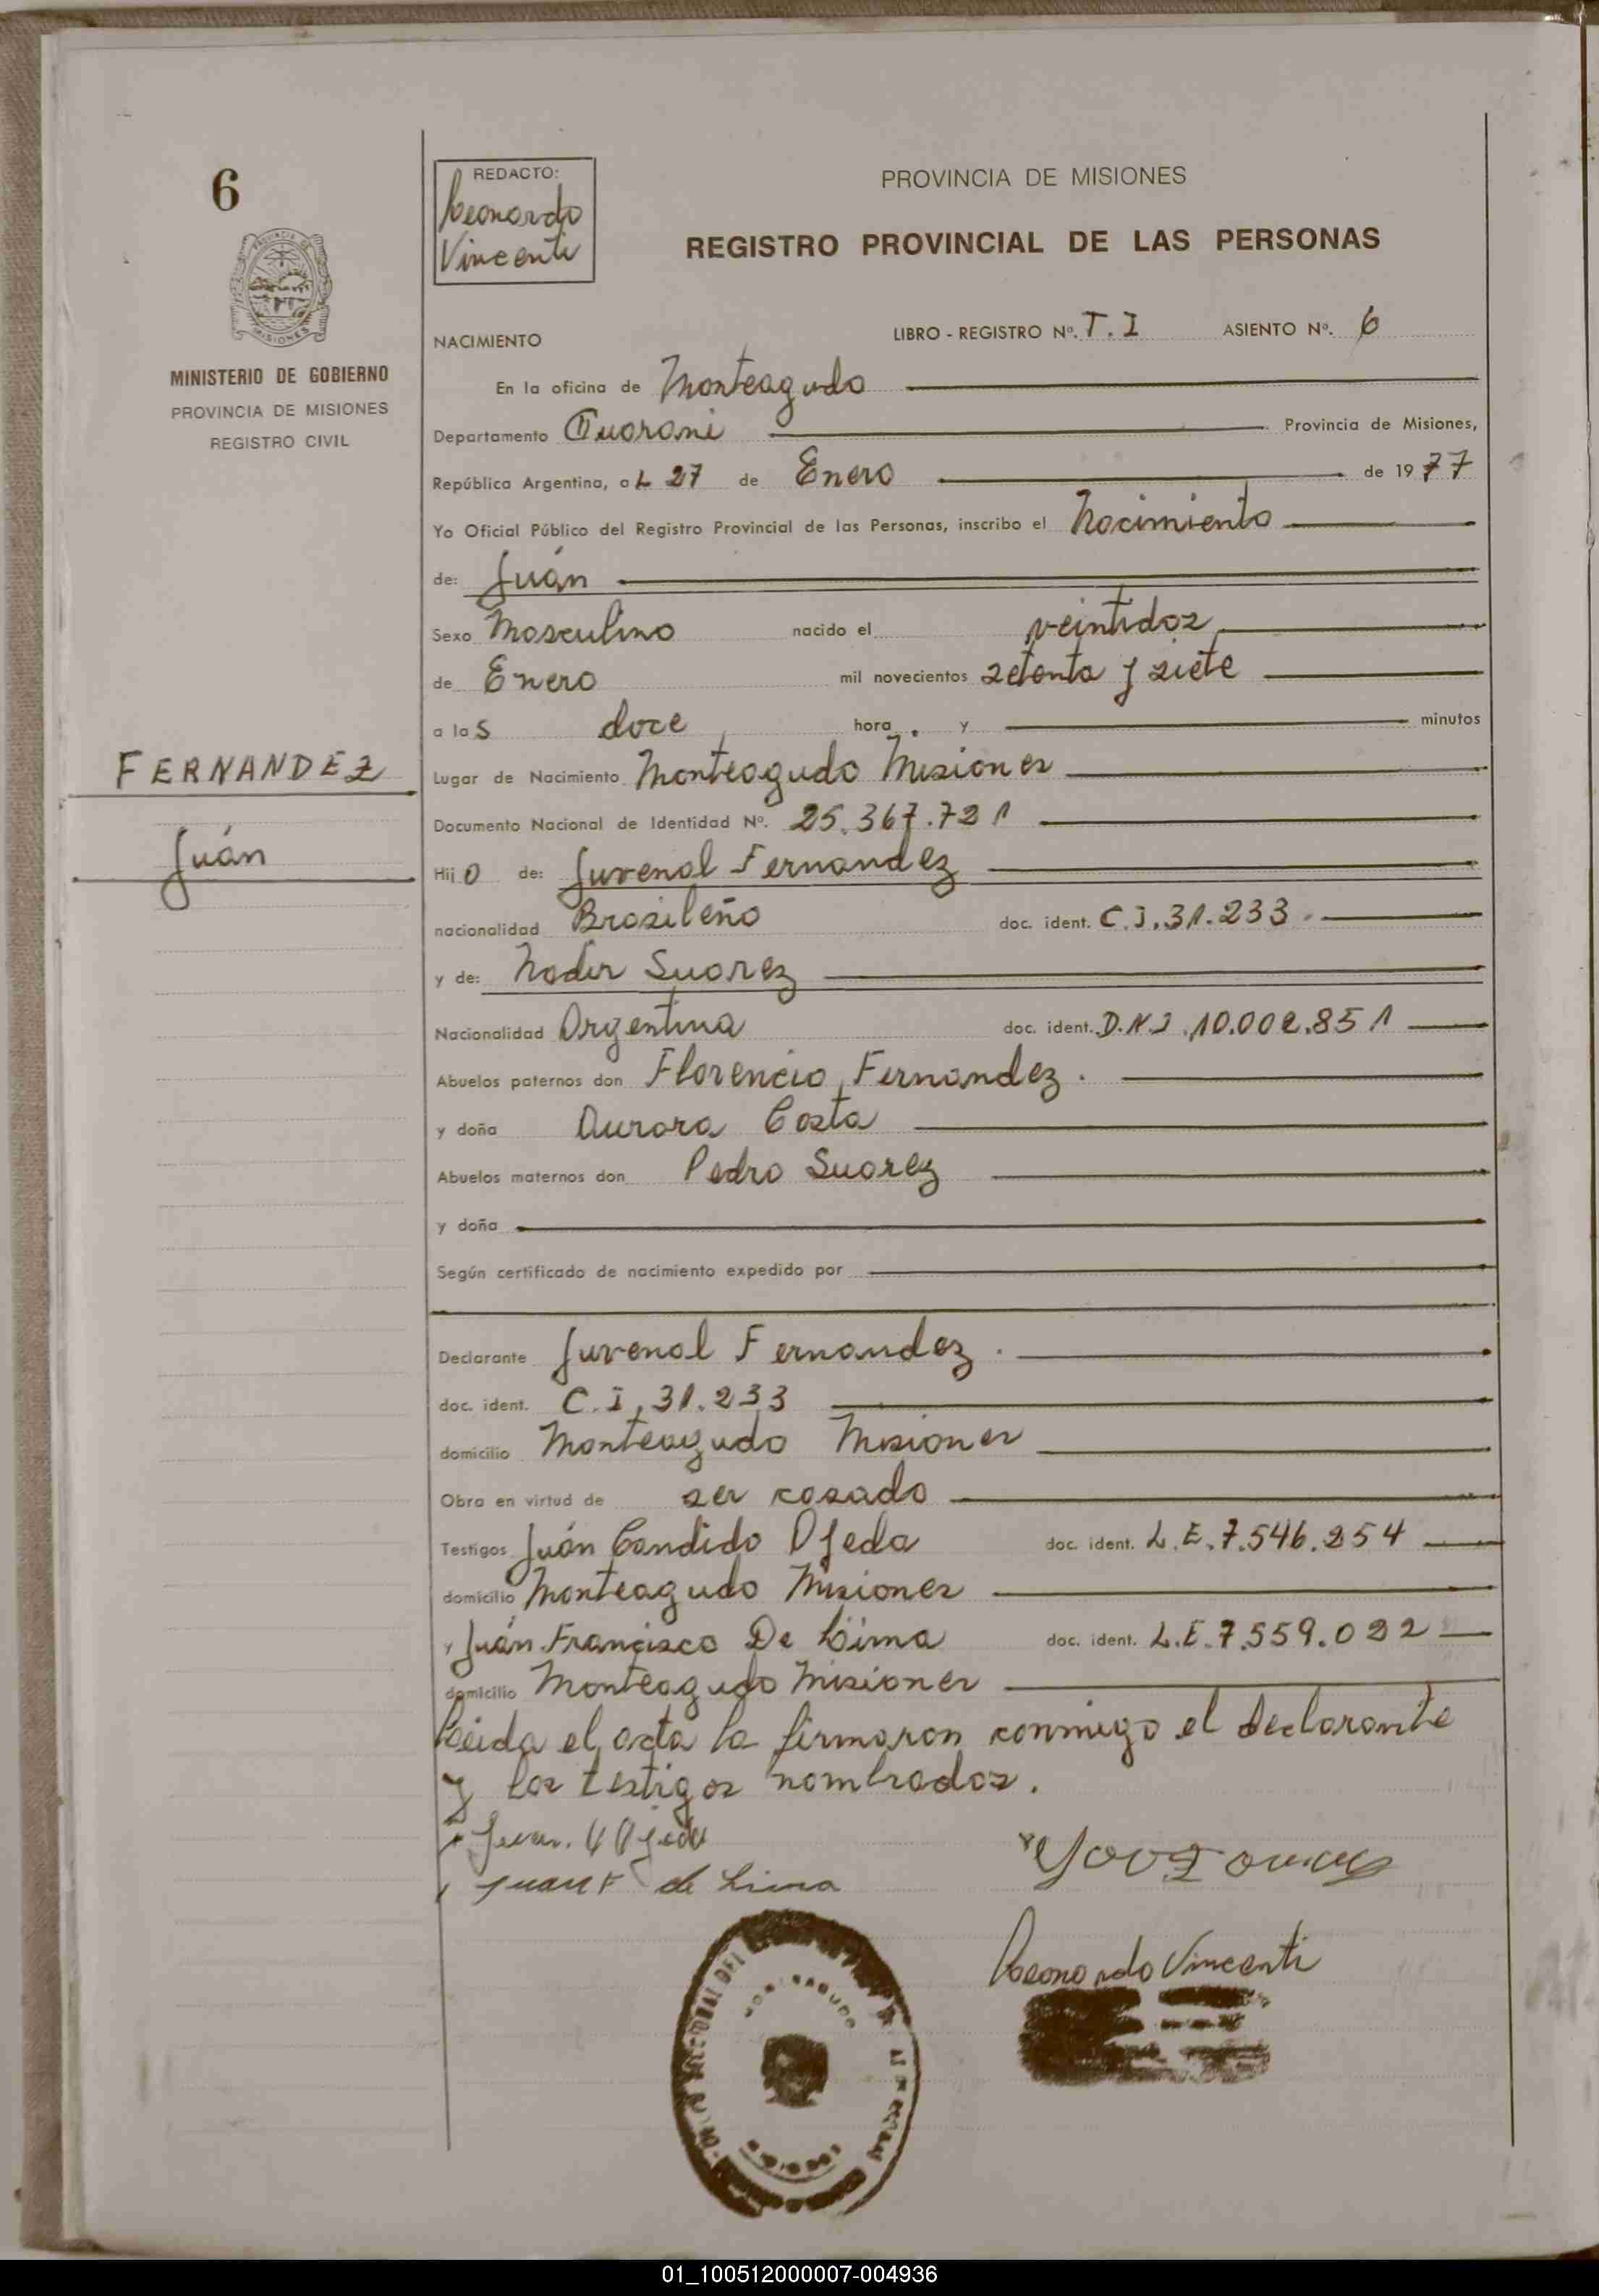 6
PROVINCIA DE
MISIONES
MINISTERIO DE GOBIERNO
PROVINCIA DE MISIONES
REGISTRO CIVIL
FERNANDEZ
Juán
REDACTO:
Leonardo
Vincenti
PROVINCIA DE MISIONES
REGISTRO PROVINCIAL DE LAS PERSONAS
NACIMIENTO LIBRO - REGISTRO Nº. T.I ASIENTO Nº. 6
En la oficina de Monteagudo
Departamento Guarani Provincia de Misiones,
República Argentina, a L 27 de Enero de 1977
Yo Oficial Público del Registro Provincial de las Personas, inscribo el Nacimiento
de: Juán
Sexo Masculino nacido el veintidos
de Enero mil novecientos setenta y siete
a las doce hora y minutos
Lugar de Nacimiento Monteagudo Misiones
Documento Nacional de Identidad Nº. 25.367.721
Hijo de: Juvenal Fernandez
nacionalidad Brasileño doc. ident. C.I.31.233
y de: Nadir Suarez
Nacionalidad Argentina doc. ident. D.N.I.10.002.851
Abuelos paternos don Florencio Fernandez.
y doña Aurora Costa
Abuelos maternos don Pedro Suarez
y doña
Según certificado de nacimiento expedido por
Declarante Juvenal Fernandez.
doc. ident. C.I.31.233
domicilio Monteagudo Misiones
Obra en virtud de ser casado
Testigos Juán Candido Ojeda doc. ident. L.E.7.546.254
domicilio Monteagudo Misiones
y Juán Francisco De Lima doc. ident. L.E.7.559.022
domicilio Monteagudo Misiones
Leida el acta la firmaron conmigo el declarante
y los testigos nombrados.
Juan F de Lima
Leonardo Vincenti
01_100512000007-004936